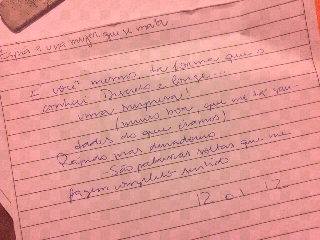 a una mujer que se mata
E você mesmo. La forma que o
conheci. Discreto e longe...
uma surpresa!
(muito boa, que me fez sau
dades do que éramos)
Rápido mas duradouro
São palavras soltas que me
fazem completo sentido
12.01.12